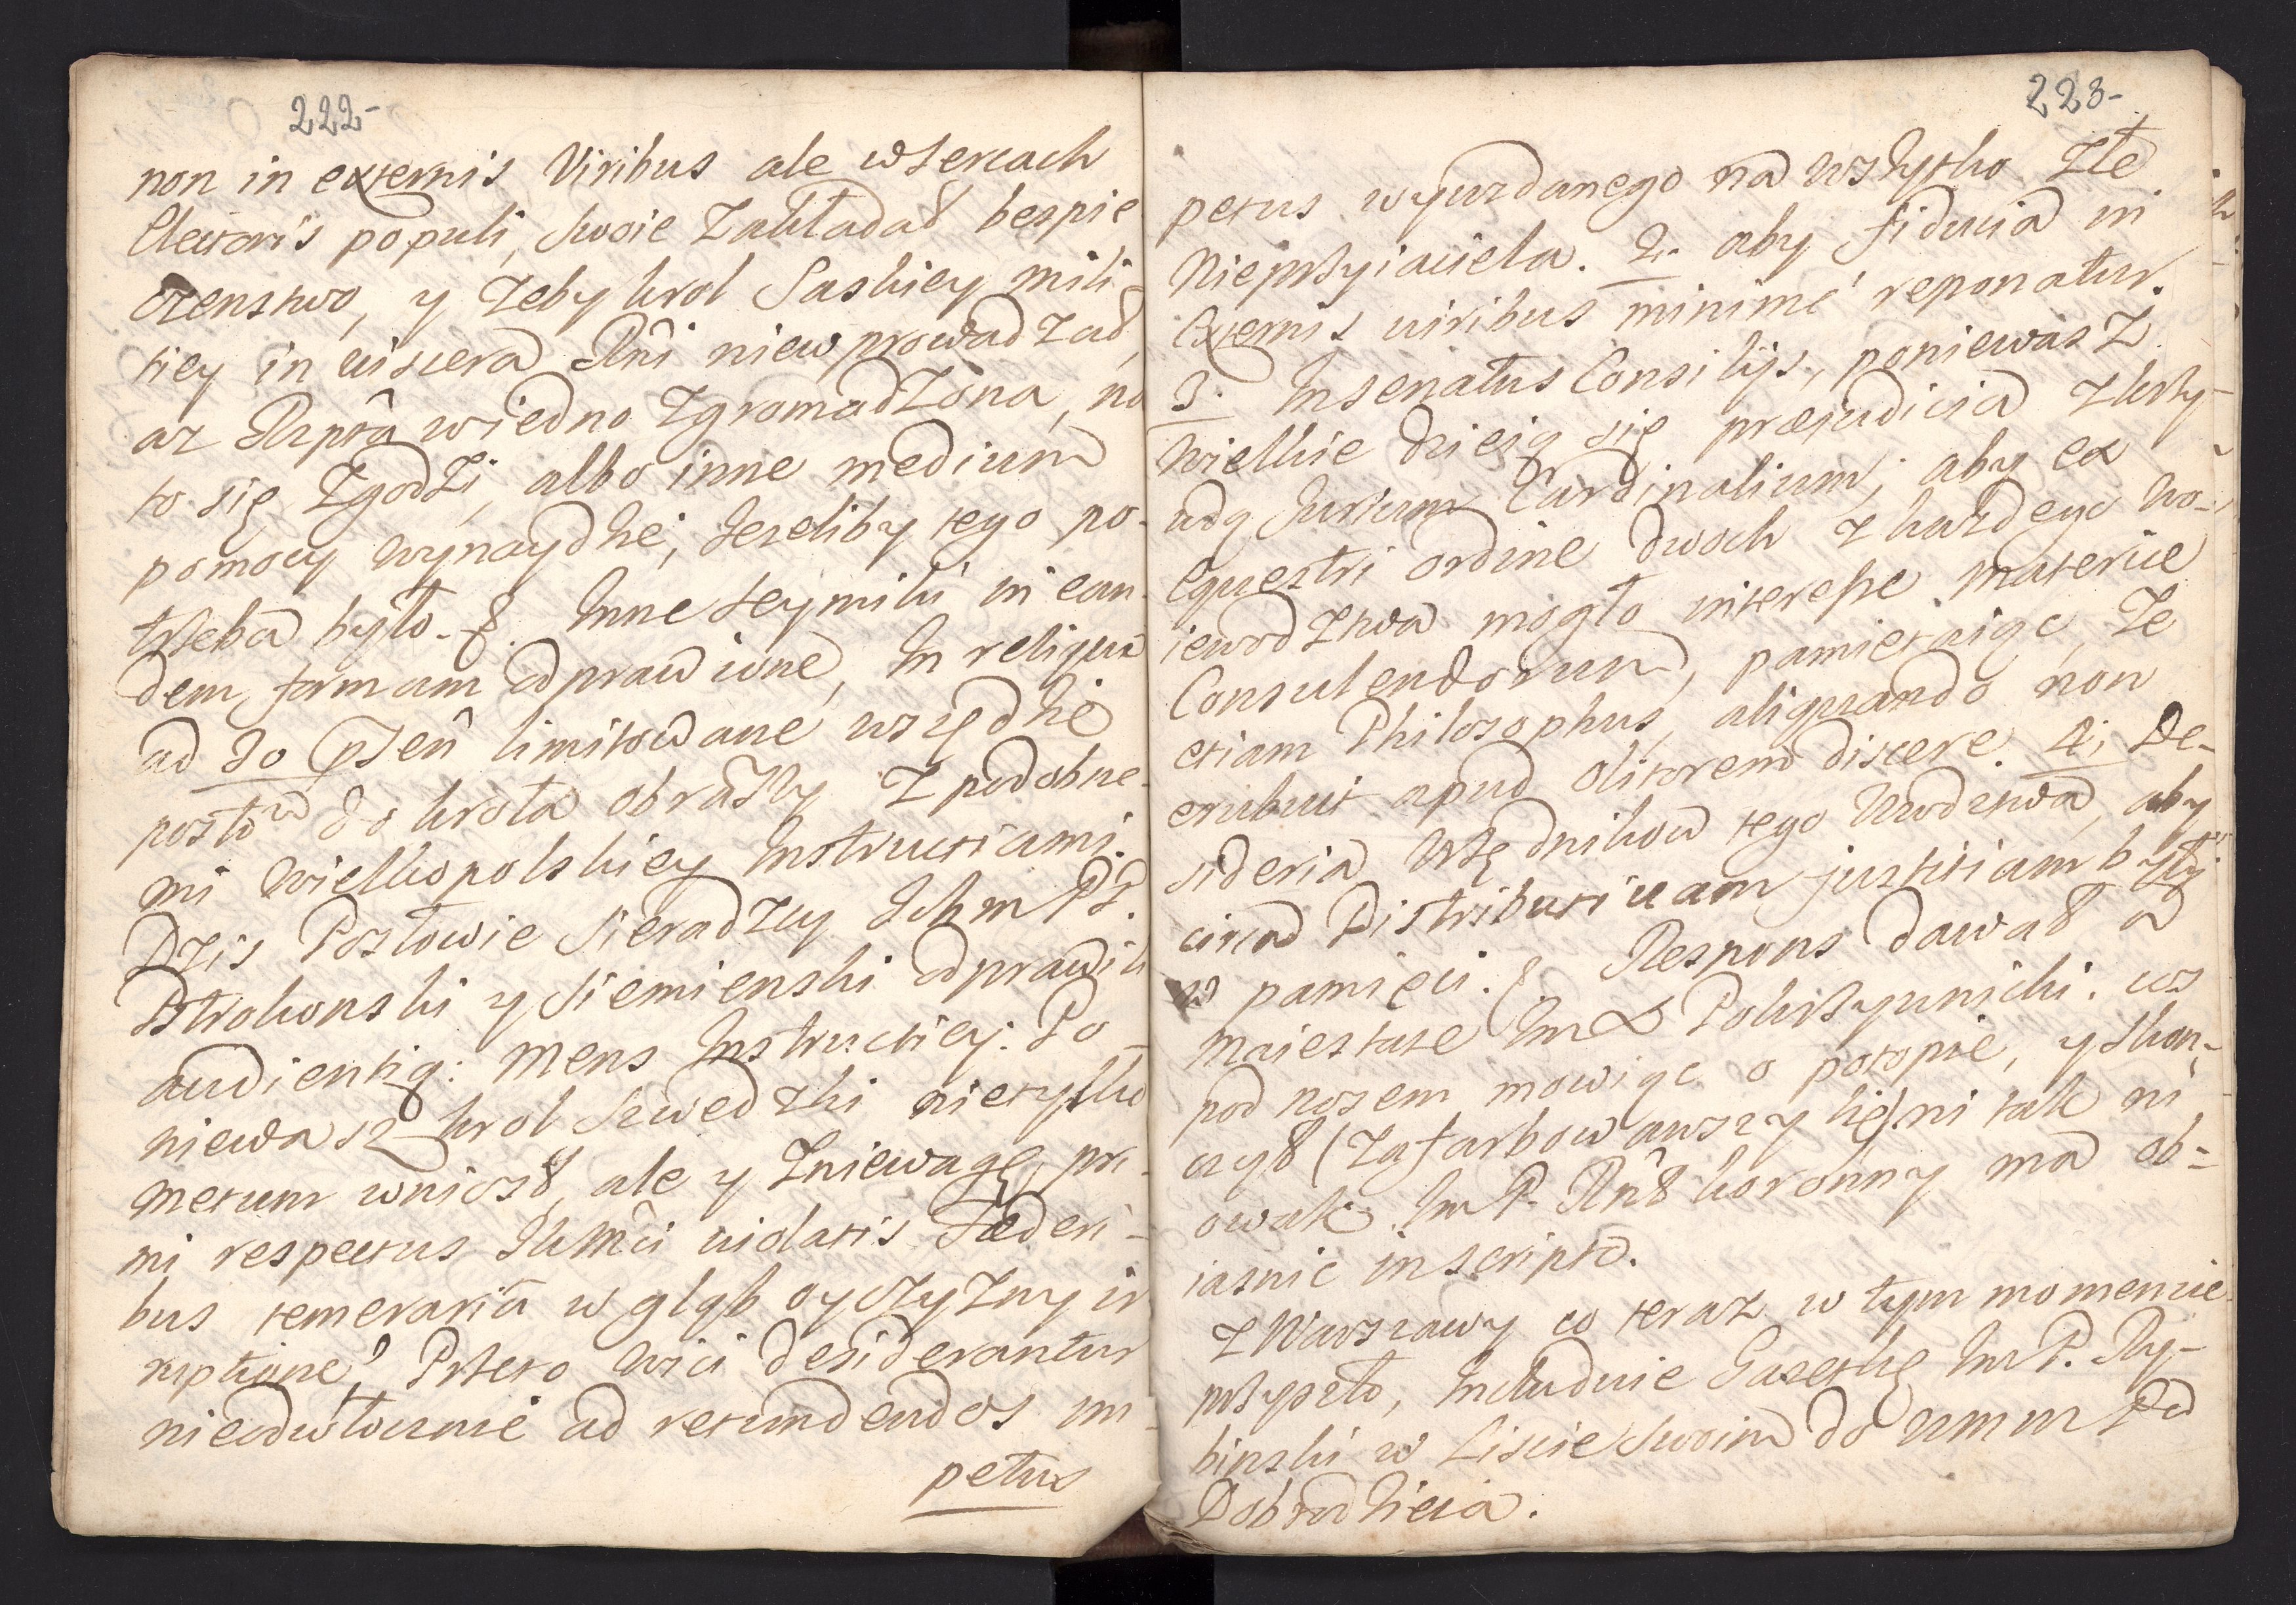 222-
non in externis Viribus ale w sercach
Electoris populi, swoie Zakładał bespie
czenstwo, y Zeby krol Saskiey mili-
tiey in viscera Rni niewprowadzał,
az Rzpta wiedno Zgromadzona, na
to się Zgodzi, albo inne medium
pomocy wynaydzie, Jezeliby tego po-
trzeba było. Inne seymiki in ean-
dem formam odprawione, In reliqua
ad 30 limitowane wszędzie
posłow do krola obrały Z podobne-
mi Wielkopolskiey Instructiami.
Dzis Posłowie Sieradzcy Ichm PP.
Pstrokonski y Siemienski odprawili
audientią: Mens Instructiey: Po-
niewasz krol Szwedzki nietylko
metum wniosł, ale y Zniewagę, pri-
mi respectus violatis Fœderi-
bus temeraria w głąb oyczyzny ir
ruptione, Przeto Wici desiderantur
nieodwłocznie ad retundendos im-
petus
223-
petus wyuzdanego na wszytko Złe
Nieprzyiaciela. 2. aby fiducia in
Externis viribus minimè reponatur.
3. In senatus Consilijs, poniewasz
Wielkie dzieią się præjudicia Zkrzy-
wdą Jurium Cardinalium, aby ex
Equestri ordine dwoch z kazdego Wo-
iewodztwa mogło interesse materiæ
Consulendorum, pamietaiąc, Ze
etiam Philosophus, aliquando non
erubuit apud olitorem discere. 4. De-
sideria Urzędnikow tego Wwodztwa, aby
circa Distributivam justitiam byli
w pamięci. Respons dawał a
Maiestate Im X Pokrzywnicki. cos
pod nosem mowiąc o potopie, y skon-
czył (Zafarbowawszy się) ni tak ni
owak. Im P. koronny ma ob-
iasnic in scripto.
Z Warszawy co teraz w tym momencie
przyszło, Includuie Gazetkę Im P. Ry-
binski w Liscie swoim do
Dobrodzieia.